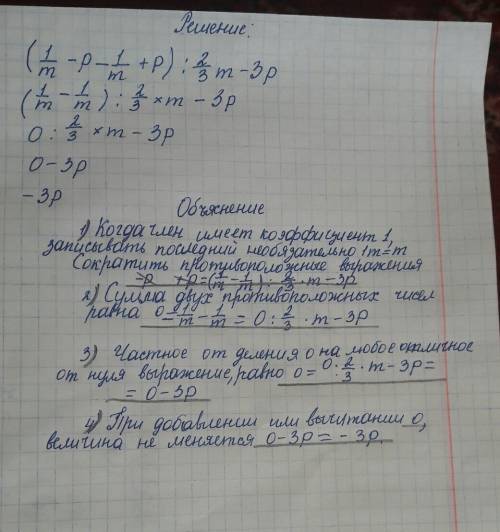 Решение:
(1/m - p - 1/m + p) : 2/3 m - 3p
(1/m - 1/m) : 2/3 × m - 3p
0 : 2/3 × m - 3p
0 - 3p
- 3p
Объяснение
1) Когда член имеет коэффициент 1,
записывать последний необязательно 1m = m
Сократить противоположные выражения
-p +p = (1/m - 1/m) : 2/3 · m - 3p
2) Сумма двух противоположных чисел
равна 0 = 1/m - 1/m = 0 : 2/3 · m - 3p
3) Частное от деления 0 на любое отличное
от нуля выражение, равно 0 = 0 : 2/3 · m - 3p =
= 0 - 3p
4) При добавлении или вычитании 0,
величина не меняется 0 - 3p = - 3p